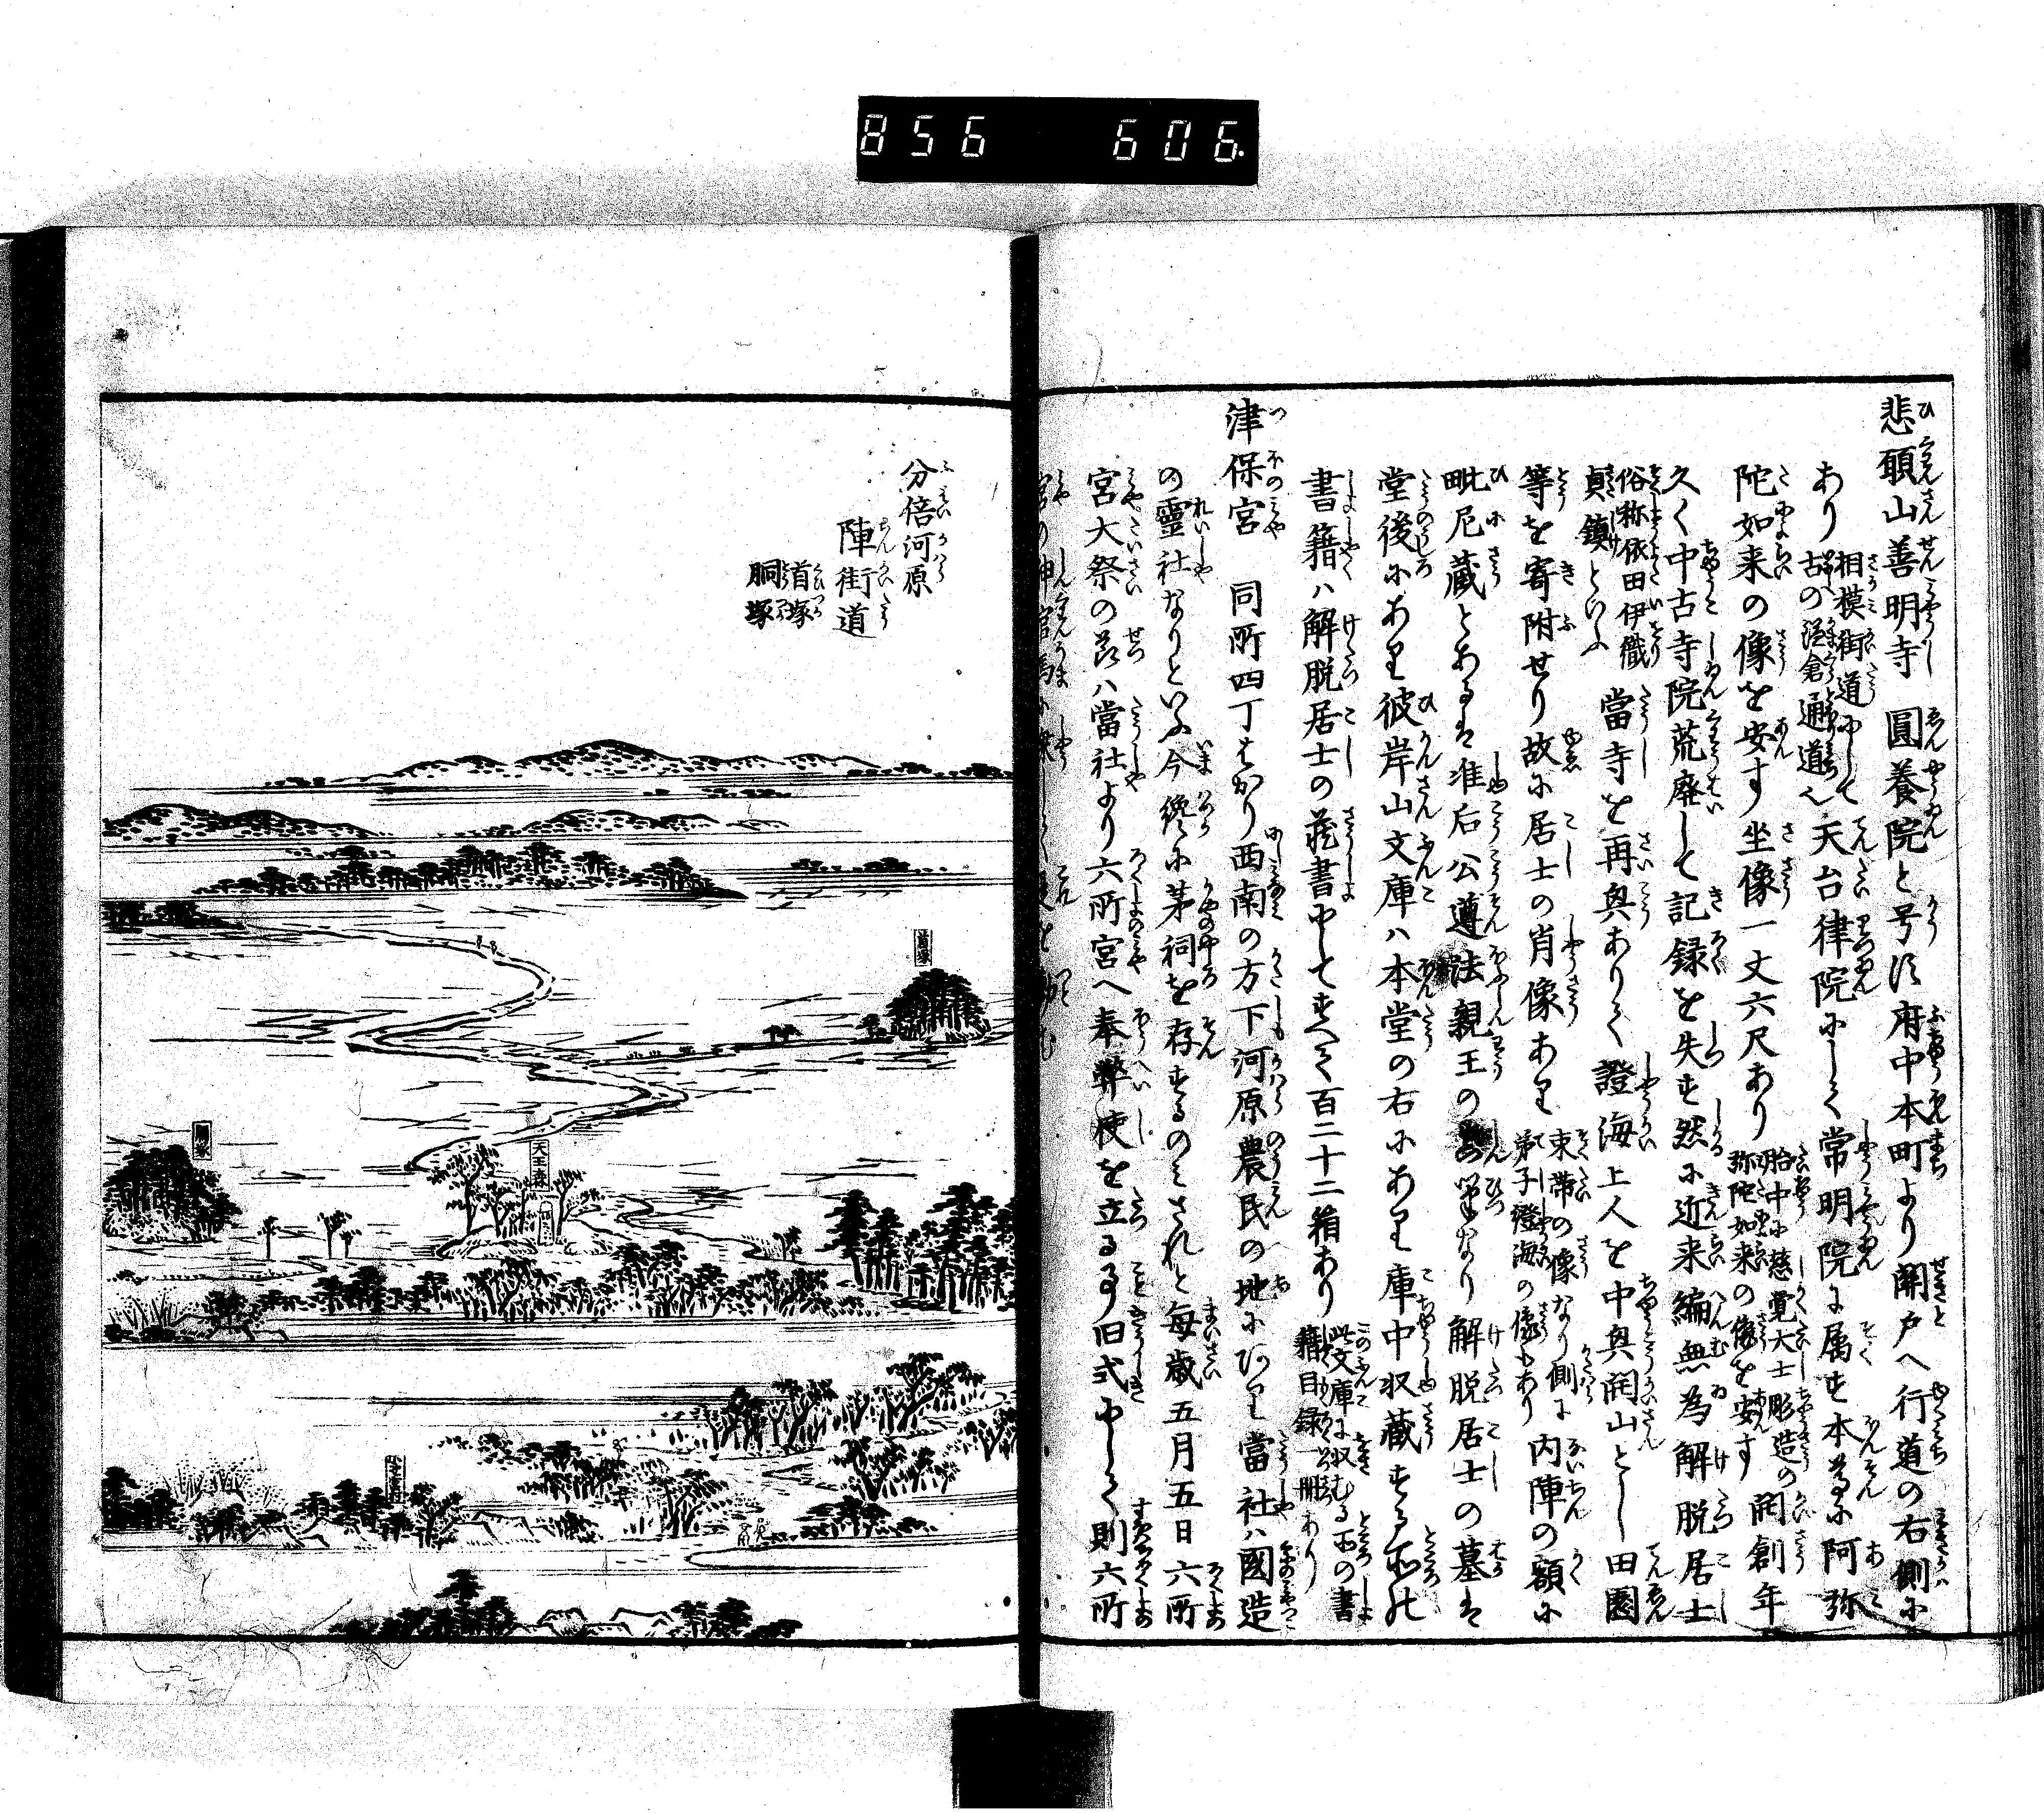 856 606
悲願山善明寺 圓養院と号す府中本町より関戸へ行道の右側に
あり
相模街道にして
古の鎌倉通道也
天台律院にして常明院に属す本尊に阿弥
陀如来の像を安す坐像一丈六尺あり
胎中に慈覚大士彫造の
弥陀如来の像を安す
開創年
久く中古寺院荒廃して記録を失す然に近来編無為解脱居士
俗称依田伊織
貞鎮といふ
當寺を再興ありて證海上人を中興開山とし田園
等を寄附せり故に居士の肖像あり
束帯の像なり側に
弟子證海の像もあり
内陣の額に
毗尼蔵とあるは准后公遵法親王の筆なり解脱居士の墓は
堂後にあり彼岸山文庫ハ本堂の右にあり庫中収蔵する所の
書籍ハ解脱居士の蔵書にしてすへて百二十二箱あり
此文庫に収むる所の書
籍目録一冊あり
津保宮 同所四丁はかり西南の方下河原農民の地にあり當社ハ國造
の靈社なりといふ今纔に茅祠を存するのミされと毎歳五月五日六所
宮大祭の節ハ當社より六所宮へ奉幣使を立る事旧式にして則六所
分倍河原
陣街道
首塚
胴塚
首塚
胴塚
天王森